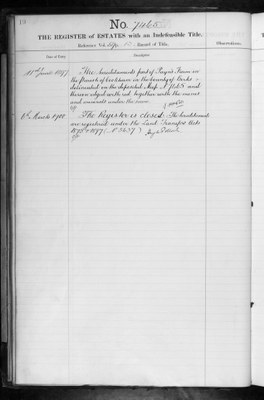 19
No. 7465
THE REGISTER of ESTATES with an Indefeasible Title.
Reference Vol. Record of Title.
Date of Entry.
Description.
Observations.
1897
The hereditaments part of Farm in
the Parish of Cookham in the County of Berks
delineated on the deposited Map and
thereon edged with red together with the mines
and minerals under the same
6th March 1900
The Register is closed. The hereditaments
are registered under the Land Transfer Acts
1875 & 1897